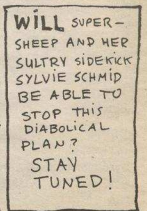 WILL SUPER-
SHEEP AND HER
SULTRY SIDEKICK
SYLVIE SCHMID
BE ABLE TO
STOP THIS
DIABOLICAL
PLAN?
STAY
TUNED!